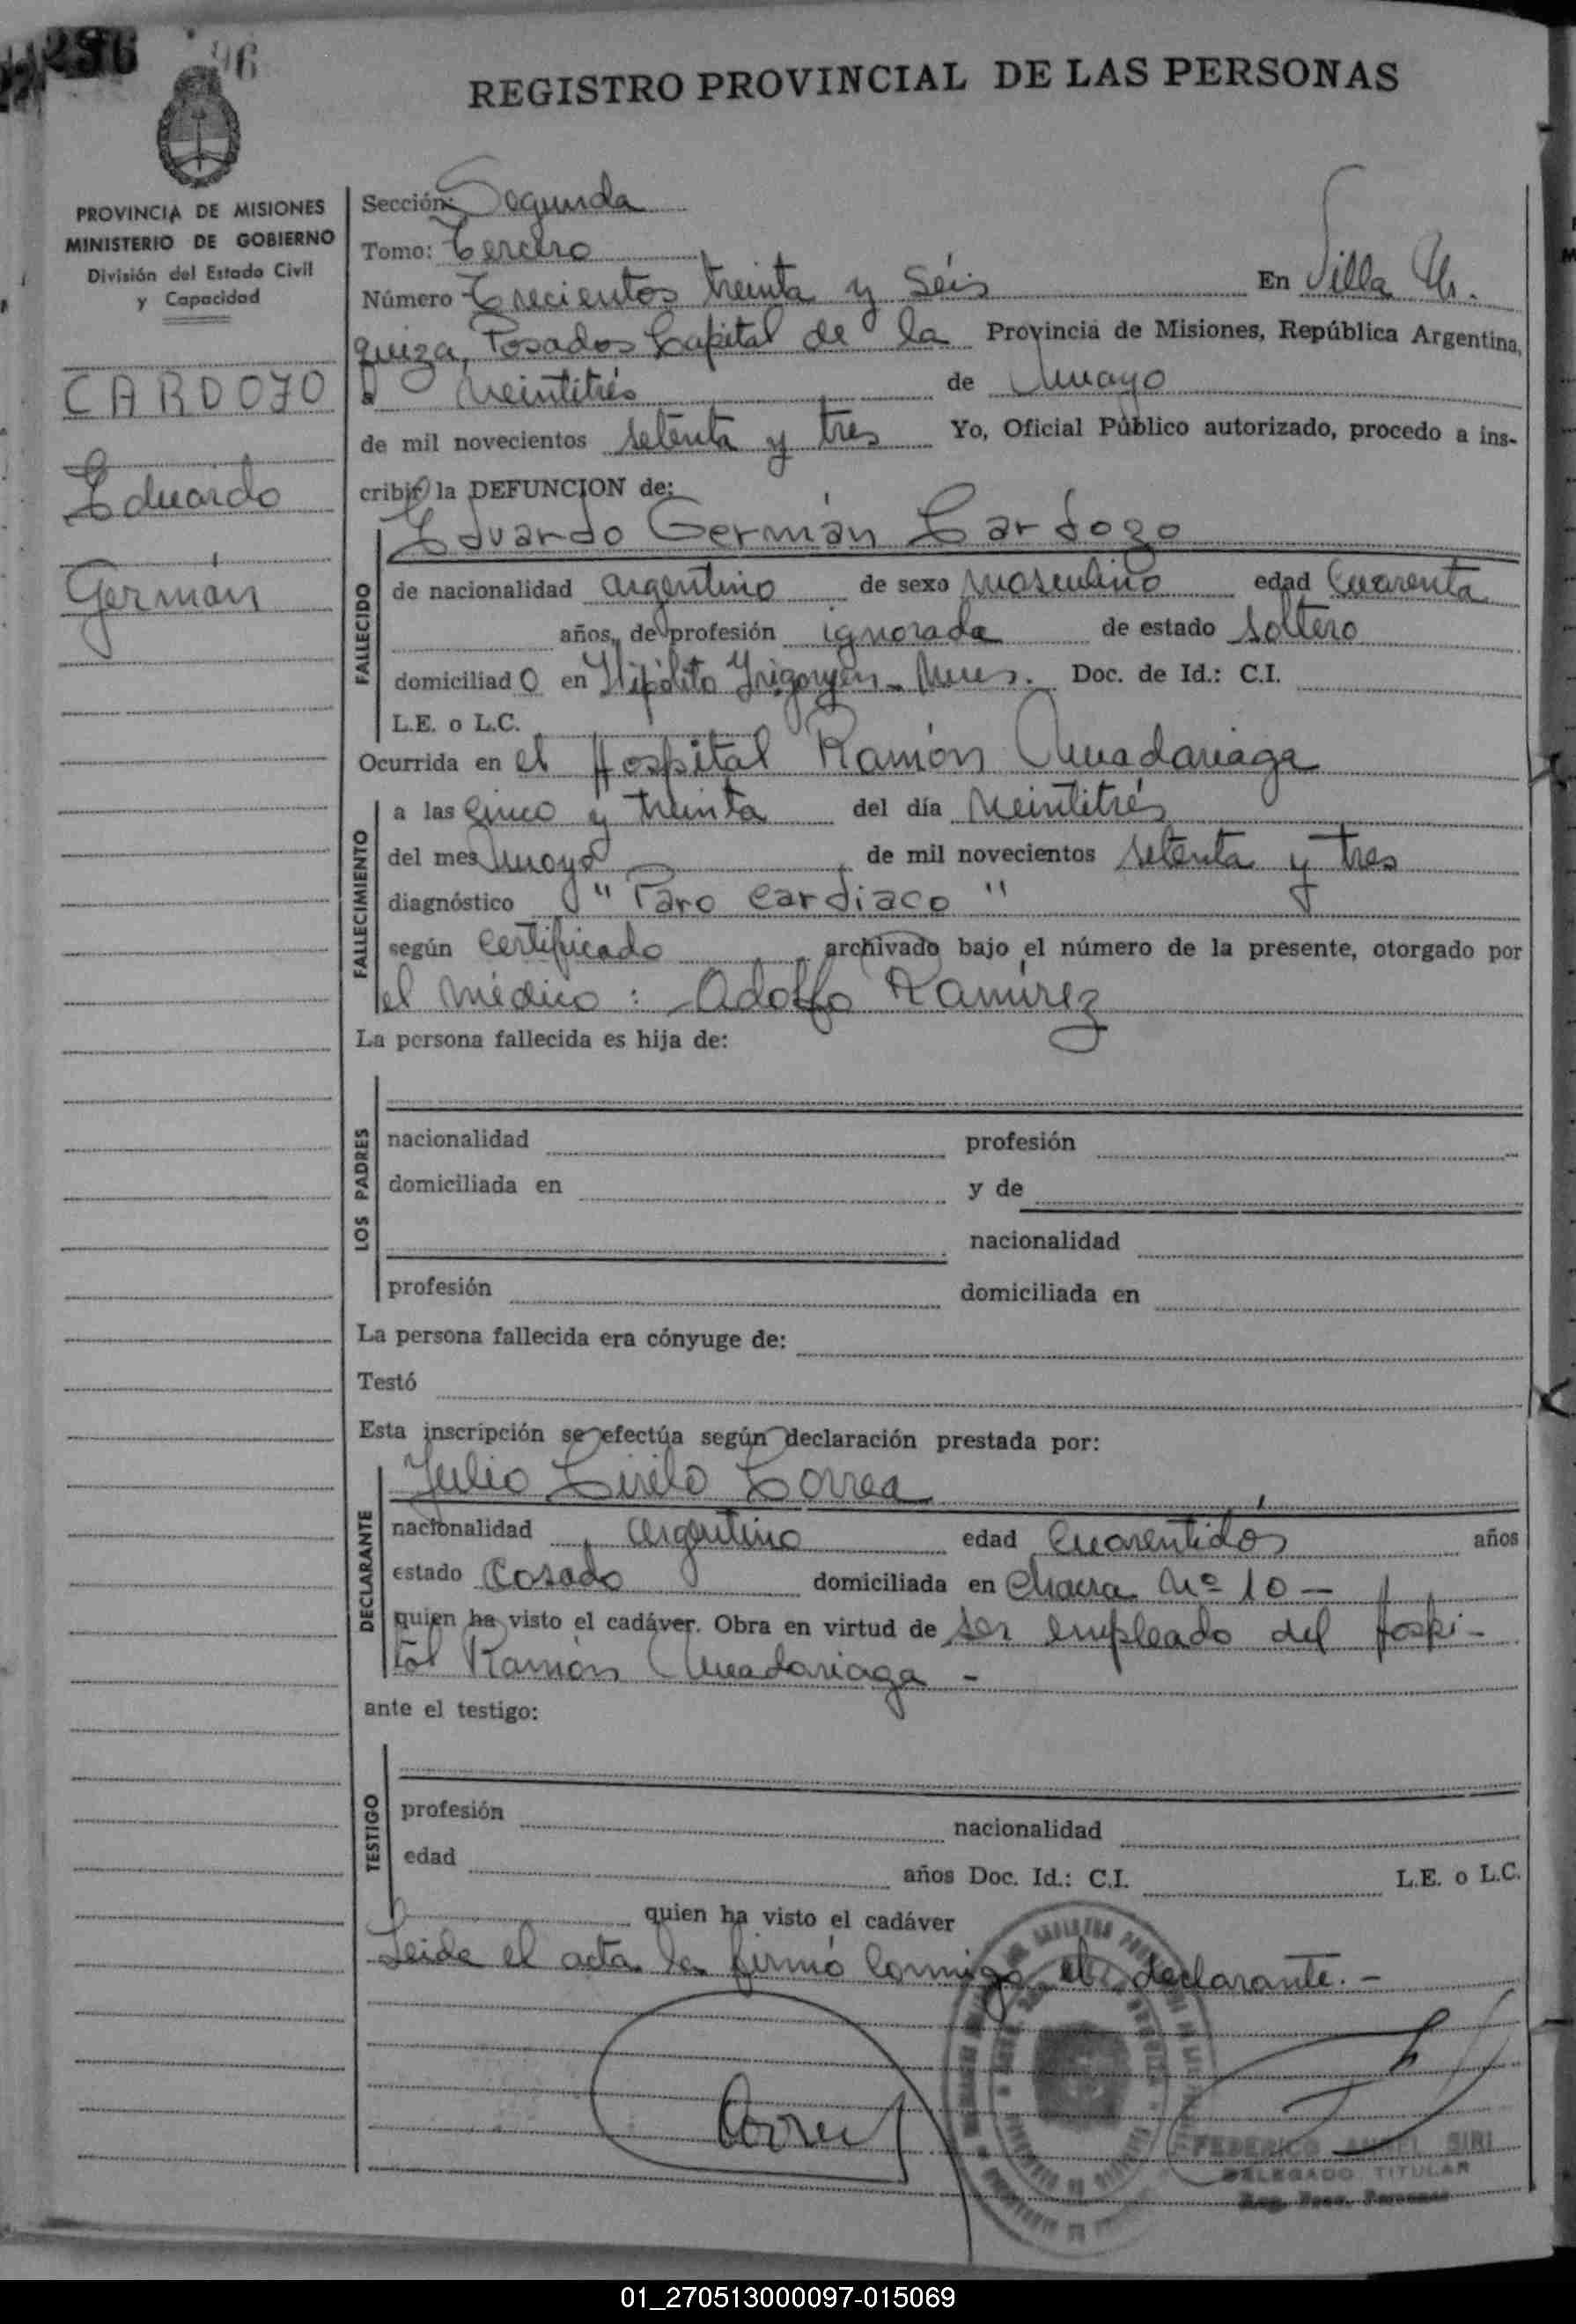 296
96
REGISTRO PROVINCIAL DE LAS PERSONAS
PROVINCIA DE MISIONES
MINISTERIO DE GOBIERNO
División del Estado Civil
y Capacidad
CARDOZO
Eduardo
Germán
Sección: Segunda
Tomo: Tercero
Número Trecientos treinta y séis En Villa Ur-
quiza, Posadas Capital de la Provincia de Misiones, República Argentina,
a veintitrés de mayo
de mil novecientos setenta y tres Yo, Oficial Público autorizado, procedo a ins-
cribir la DEFUNCION de:
Eduardo Germán Cardozo
FALLECIDO
de nacionalidad argentino de sexo masculino edad cuarenta
años, de profesión ignorada de estado soltero
domiciliado en Hipólito Yrigoyen - Mnes. Doc. de Id.: C.I.
L.E. o L.C.
Ocurrida en el Hospital Ramón Madariaga
FALLECIMIENTO
a las cinco y treinta del día veintitrés
del mes mayo de mil novecientos setenta y tres
diagnóstico "Paro cardiaco"
según certificado archivado bajo el número de la presente, otorgado por
el médico: Adolfo Ramírez
La persona fallecida es hija de:
LOS PADRES
nacionalidad profesión
domiciliada en y de
nacionalidad
profesión domiciliada en
La persona fallecida era cónyuge de:
Testó
Esta inscripción se efectúa según declaración prestada por:
DECLARANTE
Julio Cirilo Correa
nacionalidad argentino edad cuarentidós años
estado casado domiciliada en chacra Nº 10 -
quien ha visto el cadáver. Obra en virtud de ser empleado del Hospi-
tal Ramón Madariaga -
ante el testigo:
TESTIGO
profesión nacionalidad
edad años Doc. Id.: C.I. L.E. o L.C.
quien ha visto el cadáver
Leida el acta la firmó conmigo el declarante. -
Correa
FEDERICO ANGEL SIRI
DELEGADO TITULAR
Reg. Prov. Personas
01_270513000097-015069